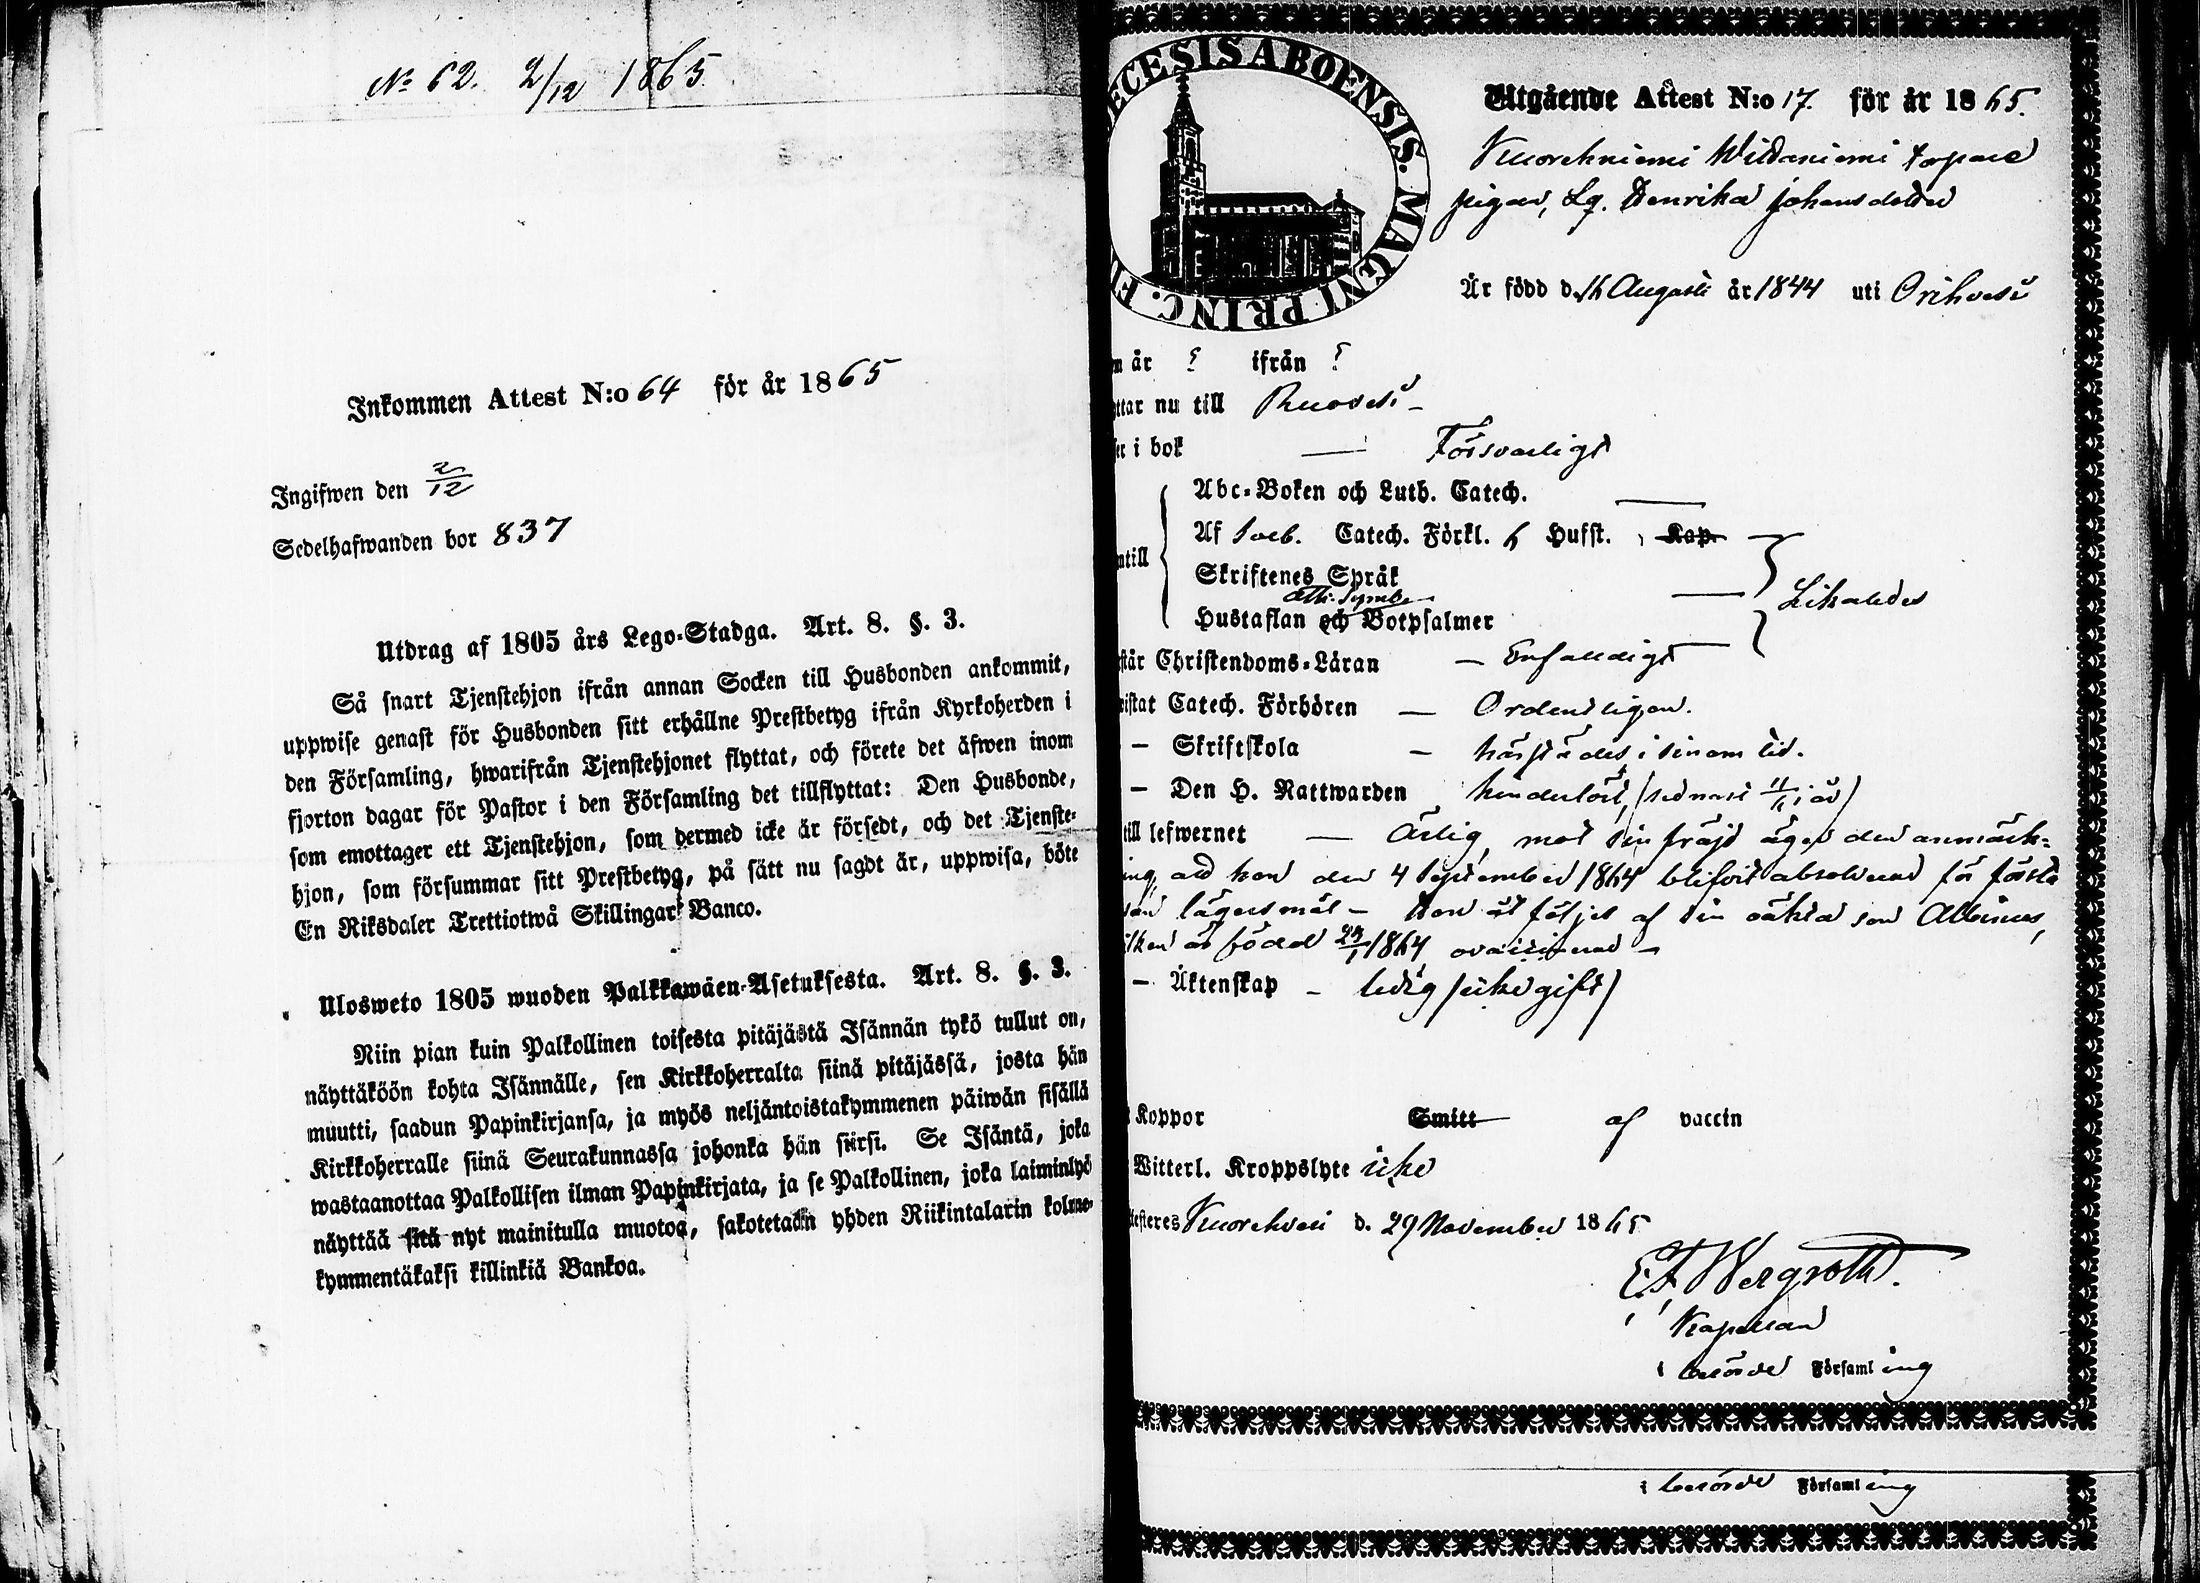 No 62. 2/12 1865
Inkommen Attest N:o 64 för år 1865
Ingifwen den 2/12
Sedelhafwanden bor 837
Utdrag af 1805 års Lego-Stadga. Art. 8. §. 3.
Så snart Tjenstehjon ifrån annan Socken till Husbonden ankommit,
uppwise genast för Husbonden sitt erhållne Prestbetyg ifrån Kyrkoherden i
den Församling, hwarifrån Tjenstehjonet flyttat, och förete det äfwen inom
fjorton dagar för Pastor i den Församling det tillflyttat: Den Husbonde,
som emottager ett Tjenstehjon, som dermed icke är försedt, och det Tjenste-
hjon, som försummar sitt Prestbetyg, på sätt nu sagdt är, uppwisa, böte
En Riksdaler Trettiotwå Skillingar Banco.
Ulosweto 1805 wuoden Palkkawäen-Asetuksesta. Art. 8. §. 3.
Niin pian kuin Palkollinen toisesta pitäjästä Isännän tykö tullut on,
näyttäköön kohta Isännälle, sen Kirkkoherralta siinä pitäjässä, josta hän
muutti, saadun Papinkirjansa, ja myös neljäntoistakymmenen päiwän sisällä
Kirkkoherralle siinä Seurakunnassa johonka hän siirsi. Se Isäntä, joka
wastaanottaa Palkollisen ilman Papinkirjata, ja se Palkollinen, joka laiminlyö
näyttää sitä nyt mainitulla muotoa, sakotetaan yhden Riikintalarin kolme-
kymmentäkaksi killinkiä Bankoa.
ECESIS ABOENSIS. MAGNI PRINC. FI
Utgående Attest N:o 17. för år 1865.
Kuorehniemi Wildaniemi torpare
pigan, Lq. Henrika Johansdotter
Är född d. 16 Augusti år 1844 uti Orihvesi
n år ? ifrån ?
ttar nu till Ruovesi
er i bok — Försvarligt
Abc-Boken och Luth. Catech.
Af Catech. Förkl. Husft. Kap.
ntill
Skriftenes Språk
Ath. Symb.
Hustaflan och Botpsalmer
Likaledes
står Christendoms-Läran — Enfaldigt
istat Catech. Förhören — Ordentligen.
— Skriftskola — härstädes i sinom tid.
— Den H. Nattwarden hinderlöst, (sednast 11/6 i år)
till lefwernet — Ärlig, mot sin fräjd äger den anmärk-
ing, att hon den 4 September 1864 blifvit absolverad för första
lägersmål — Hon åtföljes af sin oäkta son Albinus,
ilken är född 23/1 1864, ovaccinerad —
— Äktenskap — ledig (icke gift)
Koppor Smitt af vaccin
Witterl. Kroppslyte icke
testeres Kuorehvesi d. 29 November 1865
E. F. Bergroth.
Kapellan
i berörde Församling
i berörde Församling